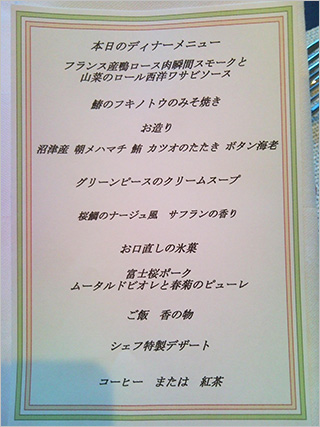 本日のディナーメニュー
フランス産鴨ロース肉瞬間スモークと
山菜のロール西洋ワサビソース
鰆のフキノトウのみそ焼き
お造り
沼津産 朝〆ハマチ 鮪 カツオのたたき ボタン海老
グリーンピースのクリームスープ
桜鯛のナージュ風 サフランの香り
お口直しの氷菓
富士桜ポーク
ムータルドビオレと春菊のピューレ
ご飯 香の物
シェフ特製デザート
コーヒー または 紅茶